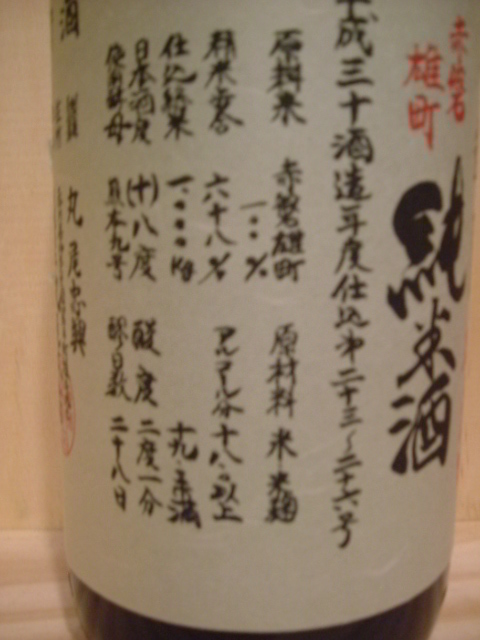 赤磐
雄町
純米酒
平成三十酒造年度仕込第二十三~二十六号
原料米 赤磐雄町 一〇〇% 原材料 米・米麹
精米歩合 六十八% アルコール分 十八・〇以上 十九・〇未満
仕込総米 一、〇〇〇Kg 酸度 二度一分
日本酒度 (十)八度 醪日数 二十八日
使用酵母 熊本九号
丸尾忠興
酒